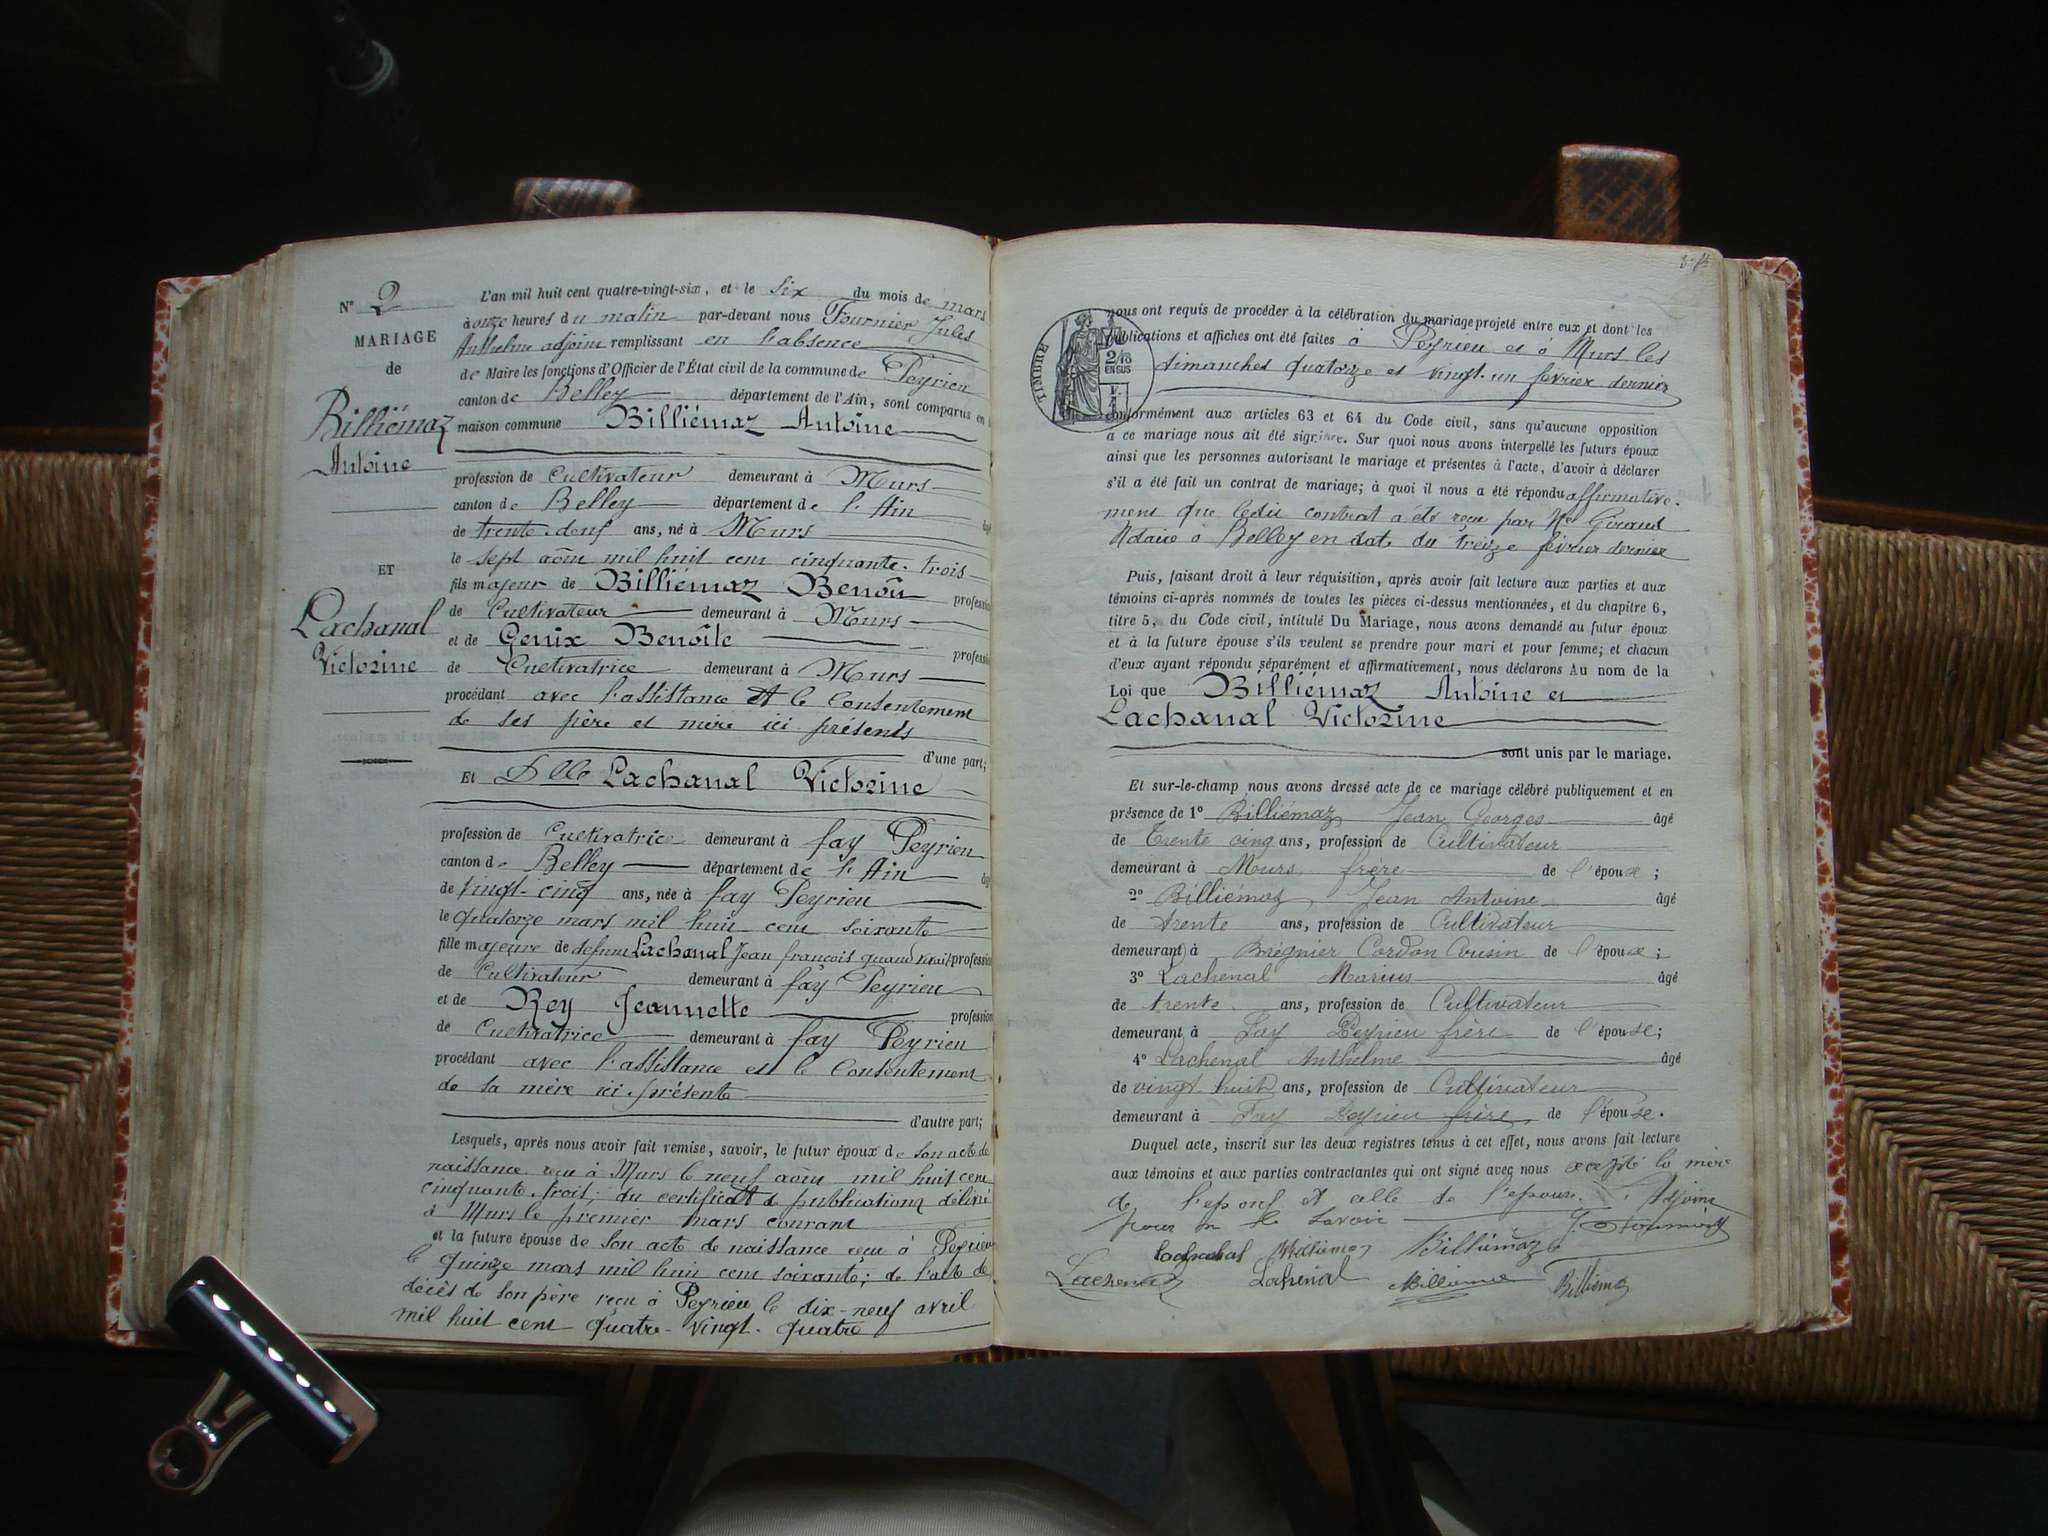 N° 2
MARIAGE
de
Billiémaz
Antoine
ET
Lachanal
Victorine
L'an mil huit cent quatre-vingt-six, et le six du mois de mars
à onze heures du matin par-devant nous Fournier Jules
Anthelme adjoint remplissant en l'absence
de Maire les fonctions d'Officier de l'État civil de la commune de Peyrieu
canton de Belley département de l'Ain, sont comparus en
maison commune Billiémaz Antoine
profession de Cultivateur demeurant à Murs
canton de Belley département de l'Ain âgé
de trente-deux ans, né à Murs
le sept août mil huit cent cinquante-trois
fils majeur de Billiémaz Benoît profession
de Cultivateur demeurant à Murs
et de Genix Benoîte profession
de Cultivatrice demeurant à Murs
procédant avec l'assistance et le Consentement
de ses père et mère ici présents
d'une part;
Et Dlle Lachanal Victorine
profession de Cultivatrice demeurant à fay Peyrieu
canton de Belley département de l'Ain âgé
de vingt-cinq ans, née à fay Peyrieu
le quatorze mars mil huit cent soixante
fille majeure de défunt Lachanal Jean françois quand vivait profession
de Cultivateur demeurant à fay Peyrieu
et de Rey Jeannette profession
de Cultivatrice demeurant à fay Peyrieu
procédant avec l'assistance et le Consentement
de sa mère ici présente
d'autre part;
Lesquels, après nous avoir fait remise, savoir, le futur époux de son acte de
naissance reçu à Murs le neuf août mil huit cent
cinquante-trois; du certificat de publications délivré
à Murs le premier mars courant
et la future épouse de son acte de naissance reçu à Peyrieu
le quinze mars mil huit cent soixante; de l'acte de
décès de son père reçu à Peyrieu le dix-neuf avril
mil huit cent quatre-vingt-quatre
TIMBRE
2/10
EN SUS
nous ont requis de procéder à la célébration du mariage projeté entre eux et dont les
publications et affiches ont été faites à Peyrieu et à Murs les
dimanches quatorze et vingt-un février dernier
conformément aux articles 63 et 64 du Code civil, sans qu'aucune opposition
à ce mariage nous ait été signifiée. Sur quoi nous avons interpellé les futurs époux
ainsi que les personnes autorisant le mariage et présentes à l'acte, d'avoir à déclarer
s'il a été fait un contrat de mariage; à quoi il nous a été répondu affirmative-
ment que ledit contrat a été reçu par Me Giraud
Notaire à Belley en date du treize février dernier
Puis, faisant droit à leur réquisition, après avoir fait lecture aux parties et aux
témoins ci-après nommés de toutes les pièces ci-dessus mentionnées, et du chapitre 6,
titre 5, du Code civil, intitulé Du Mariage, nous avons demandé au futur époux
et à la future épouse s'ils veulent se prendre pour mari et pour femme; et chacun
d'eux ayant répondu séparément et affirmativement, nous déclarons Au nom de la
Loi que Billiémaz Antoine et
Lachanal Victorine
sont unis par le mariage.
Et sur-le-champ nous avons dressé acte de ce mariage célébré publiquement et en
présence de 1° Billiémaz Jean Georges âgé
de Trente cinq ans, profession de Cultivateur
demeurant à Murs, frère de l'époux;
2° Billiémaz Jean Antoine âgé
de trente ans, profession de Cultivateur
demeurant à Brégnier Cordon Cousin de l'époux;
3° Lachenal Marius âgé
de trente ans, profession de Cultivateur
demeurant à Fay Peyrieu frère de l'épouse;
4° Lachenal Anthelme âgé
de vingt huit ans, profession de Cultivateur
demeurant à Fay Peyrieu frère, de l'épouse.
Duquel acte, inscrit sur les deux registres tenus à cet effet, nous avons fait lecture
aux témoins et aux parties contractantes qui ont signé avec nous excepté la mère
de l'époux et celle de l'épouse
pour ne le savoir
Adjoint
J. Fournier
Lachanal Billiémaz Billiémaz
Lachenal Lachenal Billiemaz Billiémaz